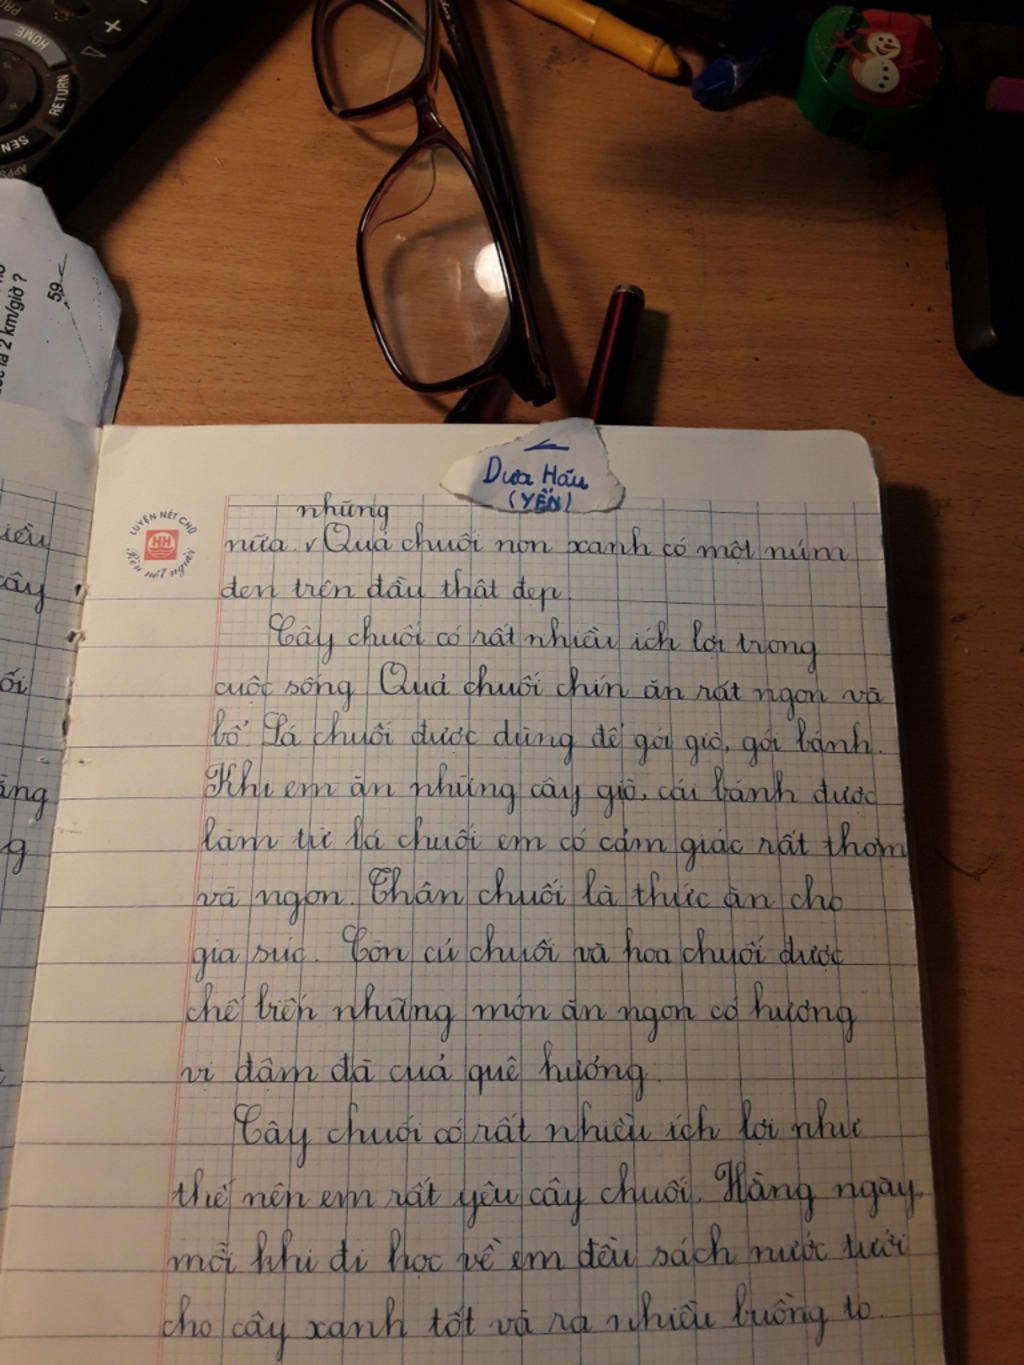 HOME
RETURN
SEN
APPS
là 2 km/giờ ?
59
Dưa Hấu
(YẾN)
LUYỆN NÉT CHỮ
HH
Rèn nết người
những
nữa. v Quả chuối non xanh có một núm
đen trên đầu thật đẹp.
Cây chuối có rất nhiều ích lợi trong
cuộc sống. Quả chuối chín ăn rất ngon và
bổ. Lá chuối được dùng để gói giò, gói bánh.
Khi em ăn những cây giò, cái bánh được
làm từ lá chuối em có cảm giác rất thơm
và ngon. Thân chuối là thức ăn cho
gia súc. Còn củ chuối và hoa chuối được
chế biến những món ăn ngon có hương
vị đậm đà cuả quê hương.
Cây chuối có rất nhiều ích lợi như
thế nên em rất yêu cây chuối. Hằng ngày,
mỗi khi đi học về em đều sách nước tưới
cho cây xanh tốt và ra nhiều buồng to.
iều
cây
ối
ăng
g